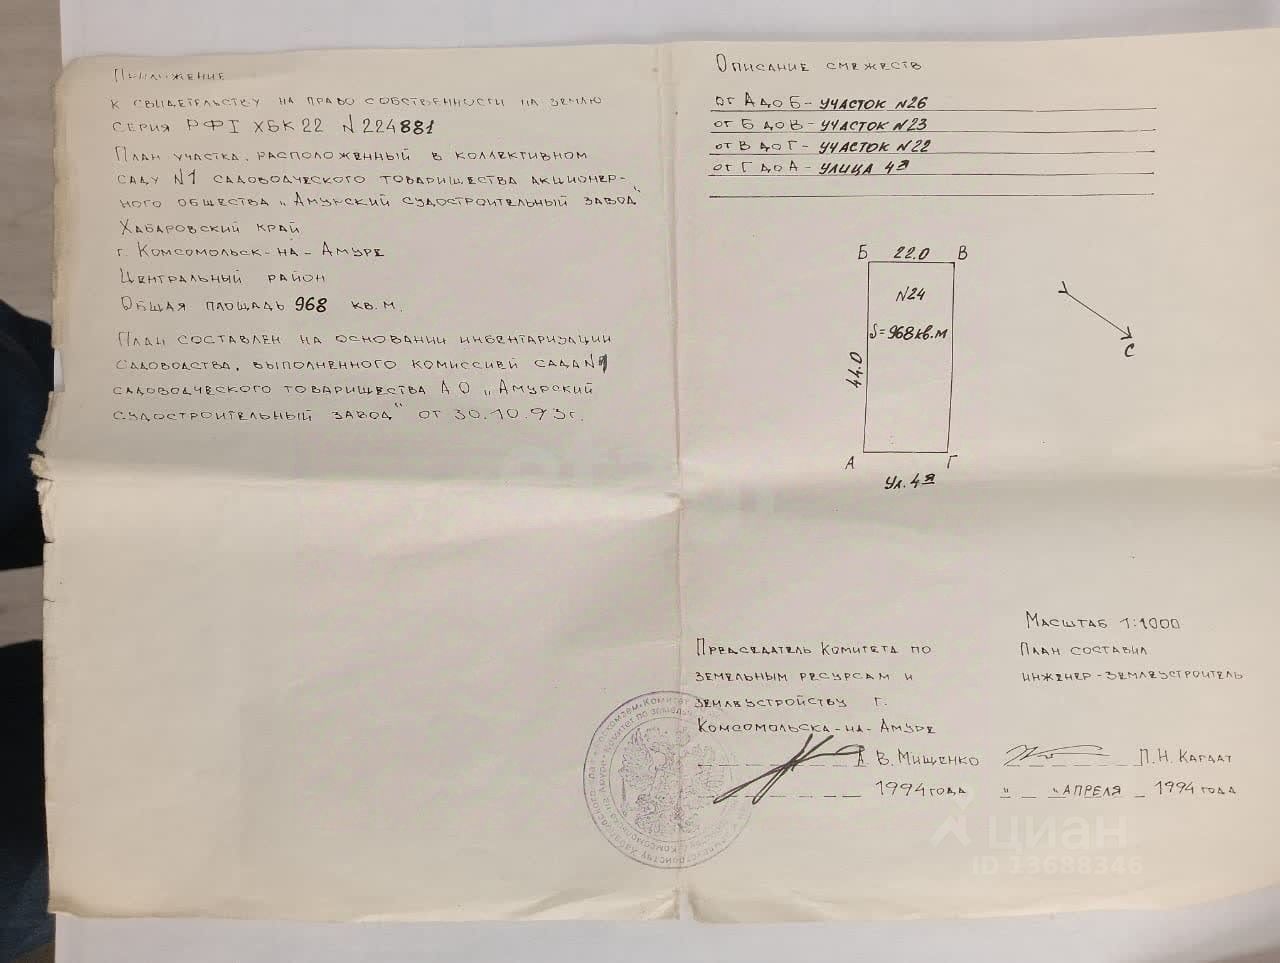 Приложение
к свидетельству на право собственности на землю
серия РФI ХБК 22 N 224881
План участка, расположенный в коллективном
саду N1 садоводческого товарищества акционер-
ного общества „Амурский судостроительный завод"
Хабаровский край
г. Комсомольск-на-Амуре
Центральный район
Общая площадь 968 кв.м.
План составлен на основании инвентаризации
садоводства, выполненного комиссией сада N1
садоводческого товарищества АО „Амурский
судостроительный завод" от 30.10.93г.
Описание смежеств
от А до Б - участок N26
от Б до В - участок N23
от В до Г - участок N22
от Г до А - улица 4я
Б 22.0 В
N24
S=968кв.м
44.0
С
А Г
Ул. 4я
Масштаб 1:1000
Председатель Комитета по
земельным ресурсам и
землеустройству г.
Комсомольска-на-Амуре
В. Мищенко
1994 года
План составил
инженер-землеустроитель
П.Н. Кардат
" " апреля 1994 года
циан
ID 13688346